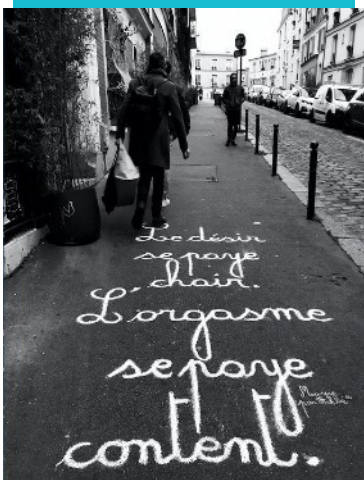 Le désir
se paye
chair.
L'orgasme
se paye
content.